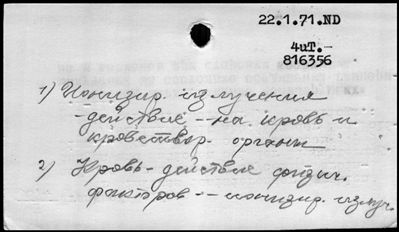 22.1.71.ND
4иТ.-
816356
1) Ионизир. излучения
-действие -- на кровь и
кроветвор. органы
2) Кровь - действие физич.
факторов -- ионизир. излуч.